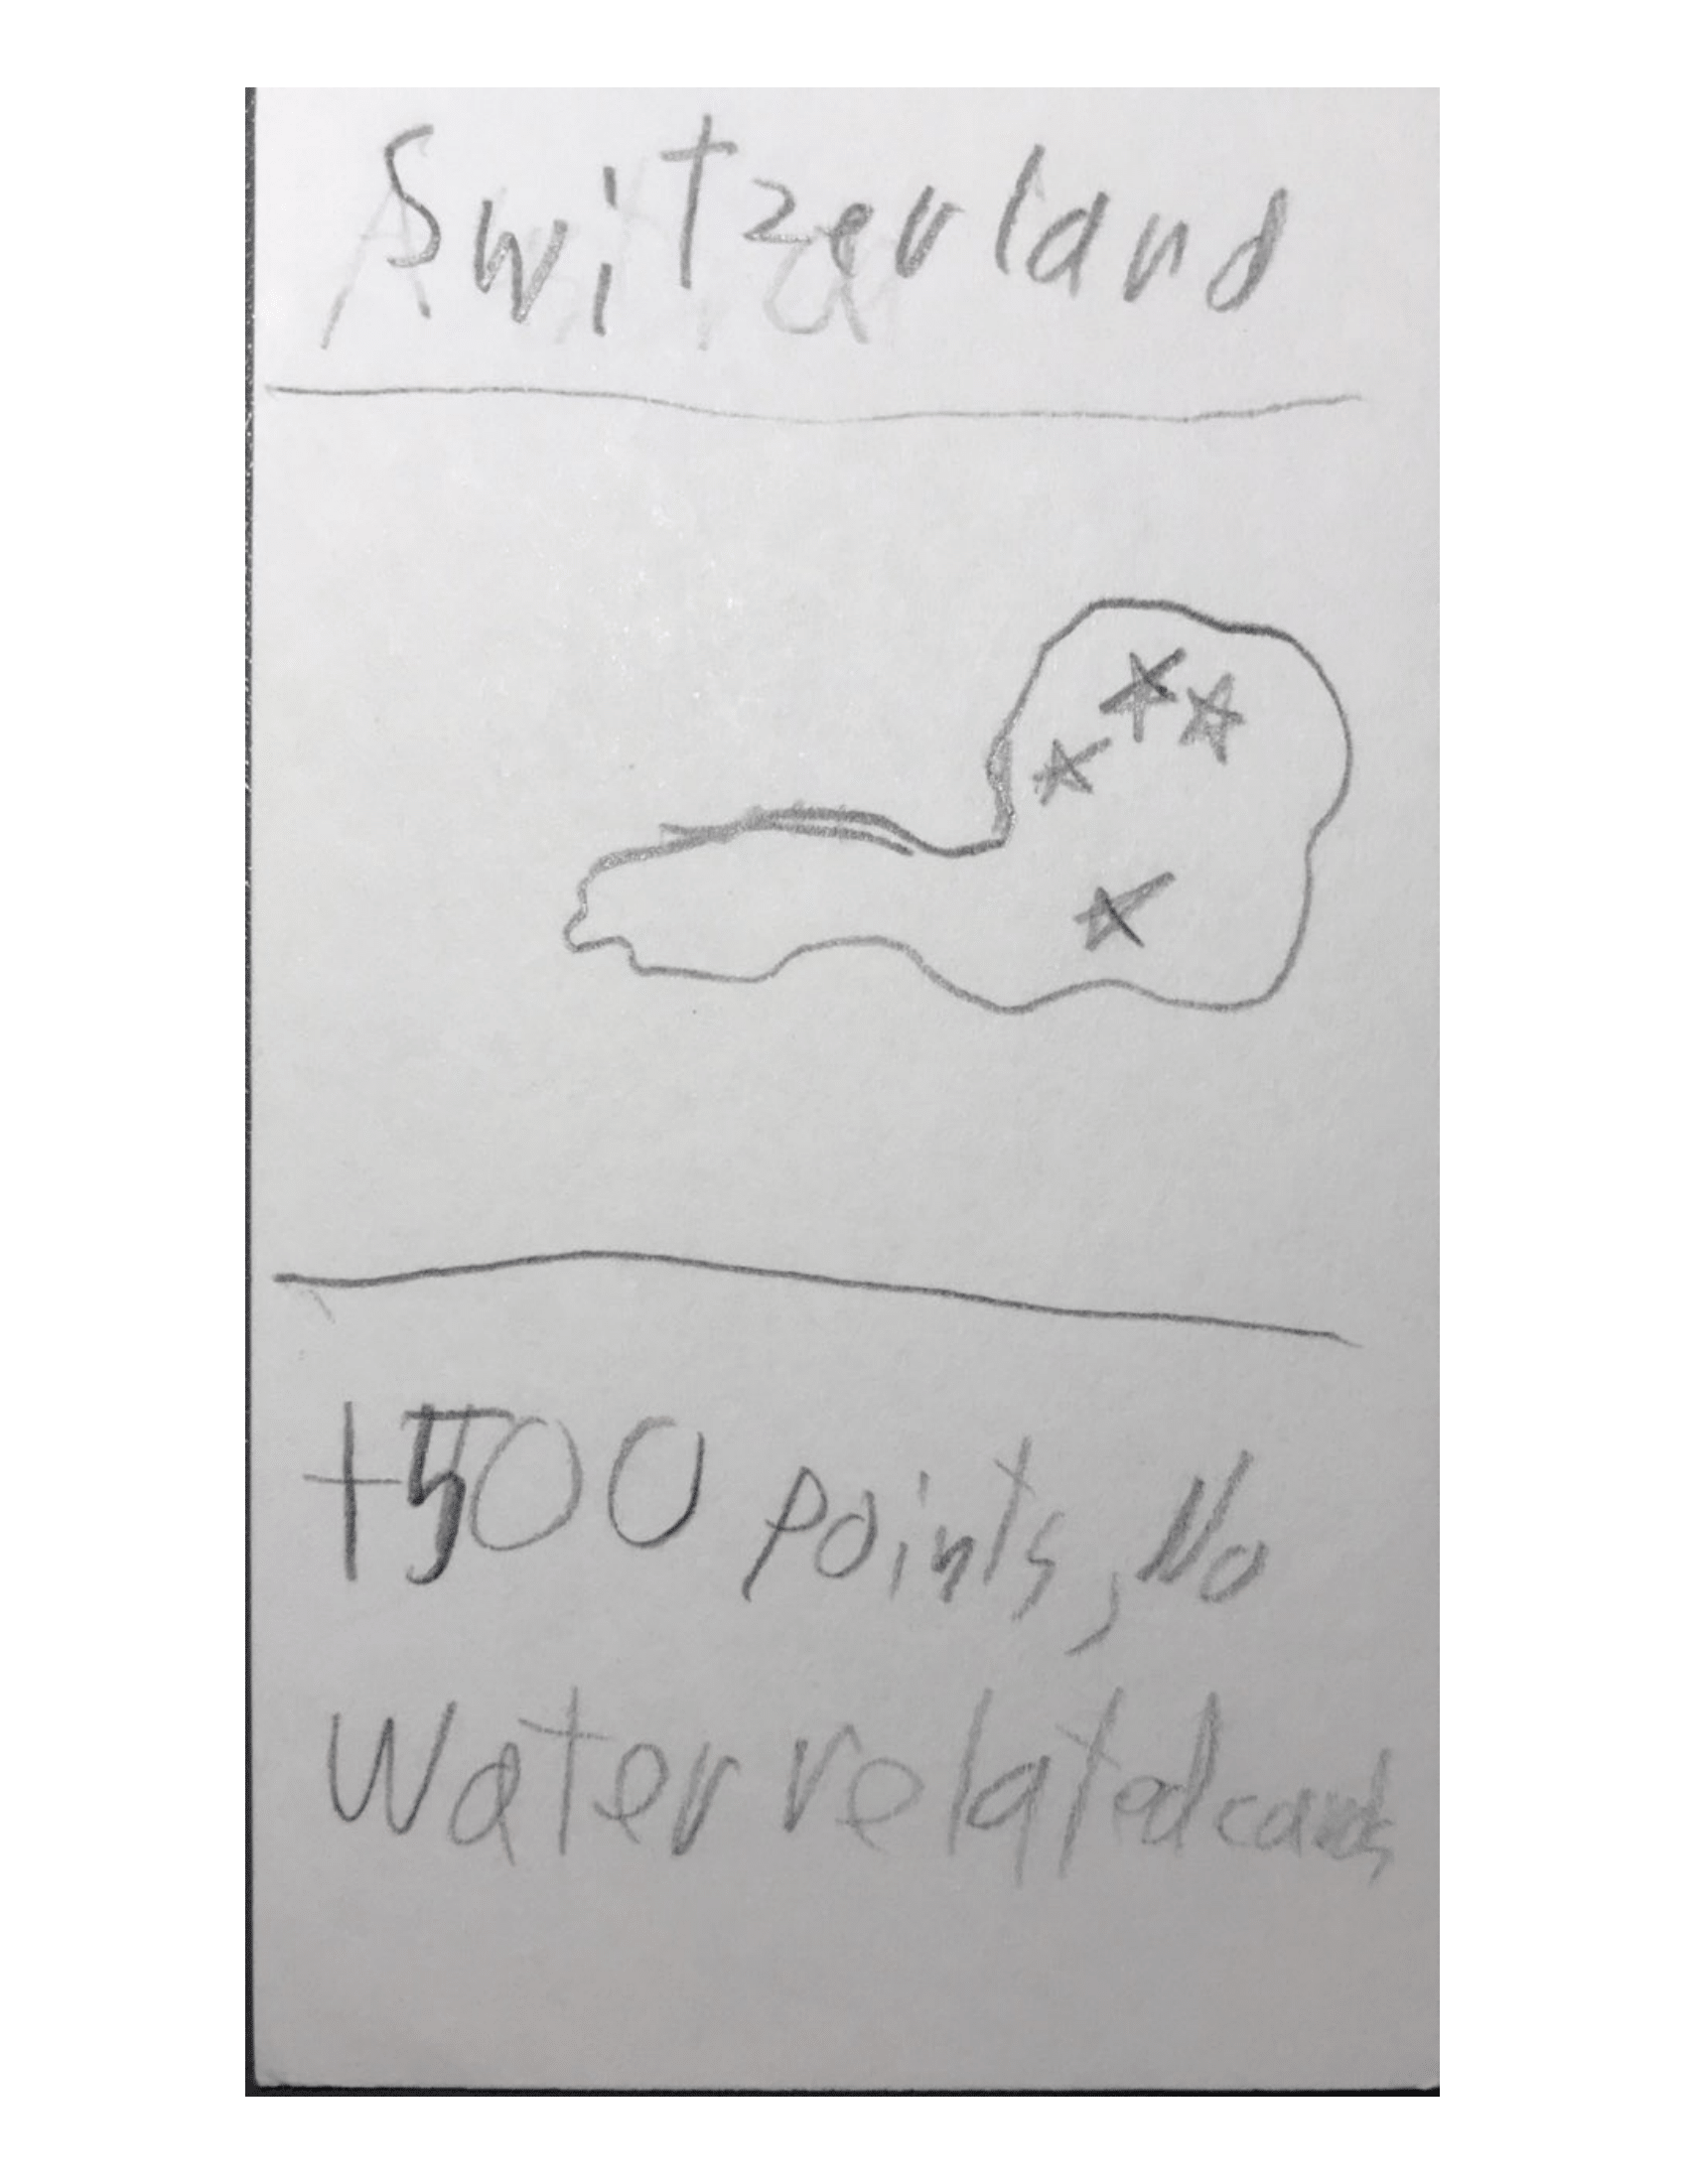 Switzerland
+500 points, No
Water related cards